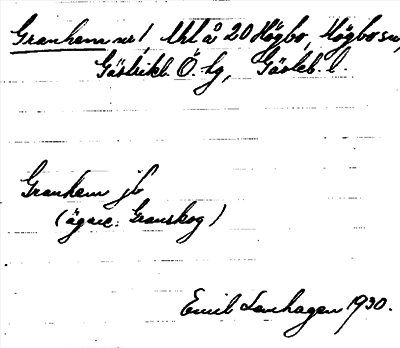 Granhem nr 1, Utl å 20 Högbo, Högbo sn,
Gästrikl. Ö. hg, Gävleb. l.
Granhem jb
(ägare: Granskog)
Emil Lenhagen 1930.